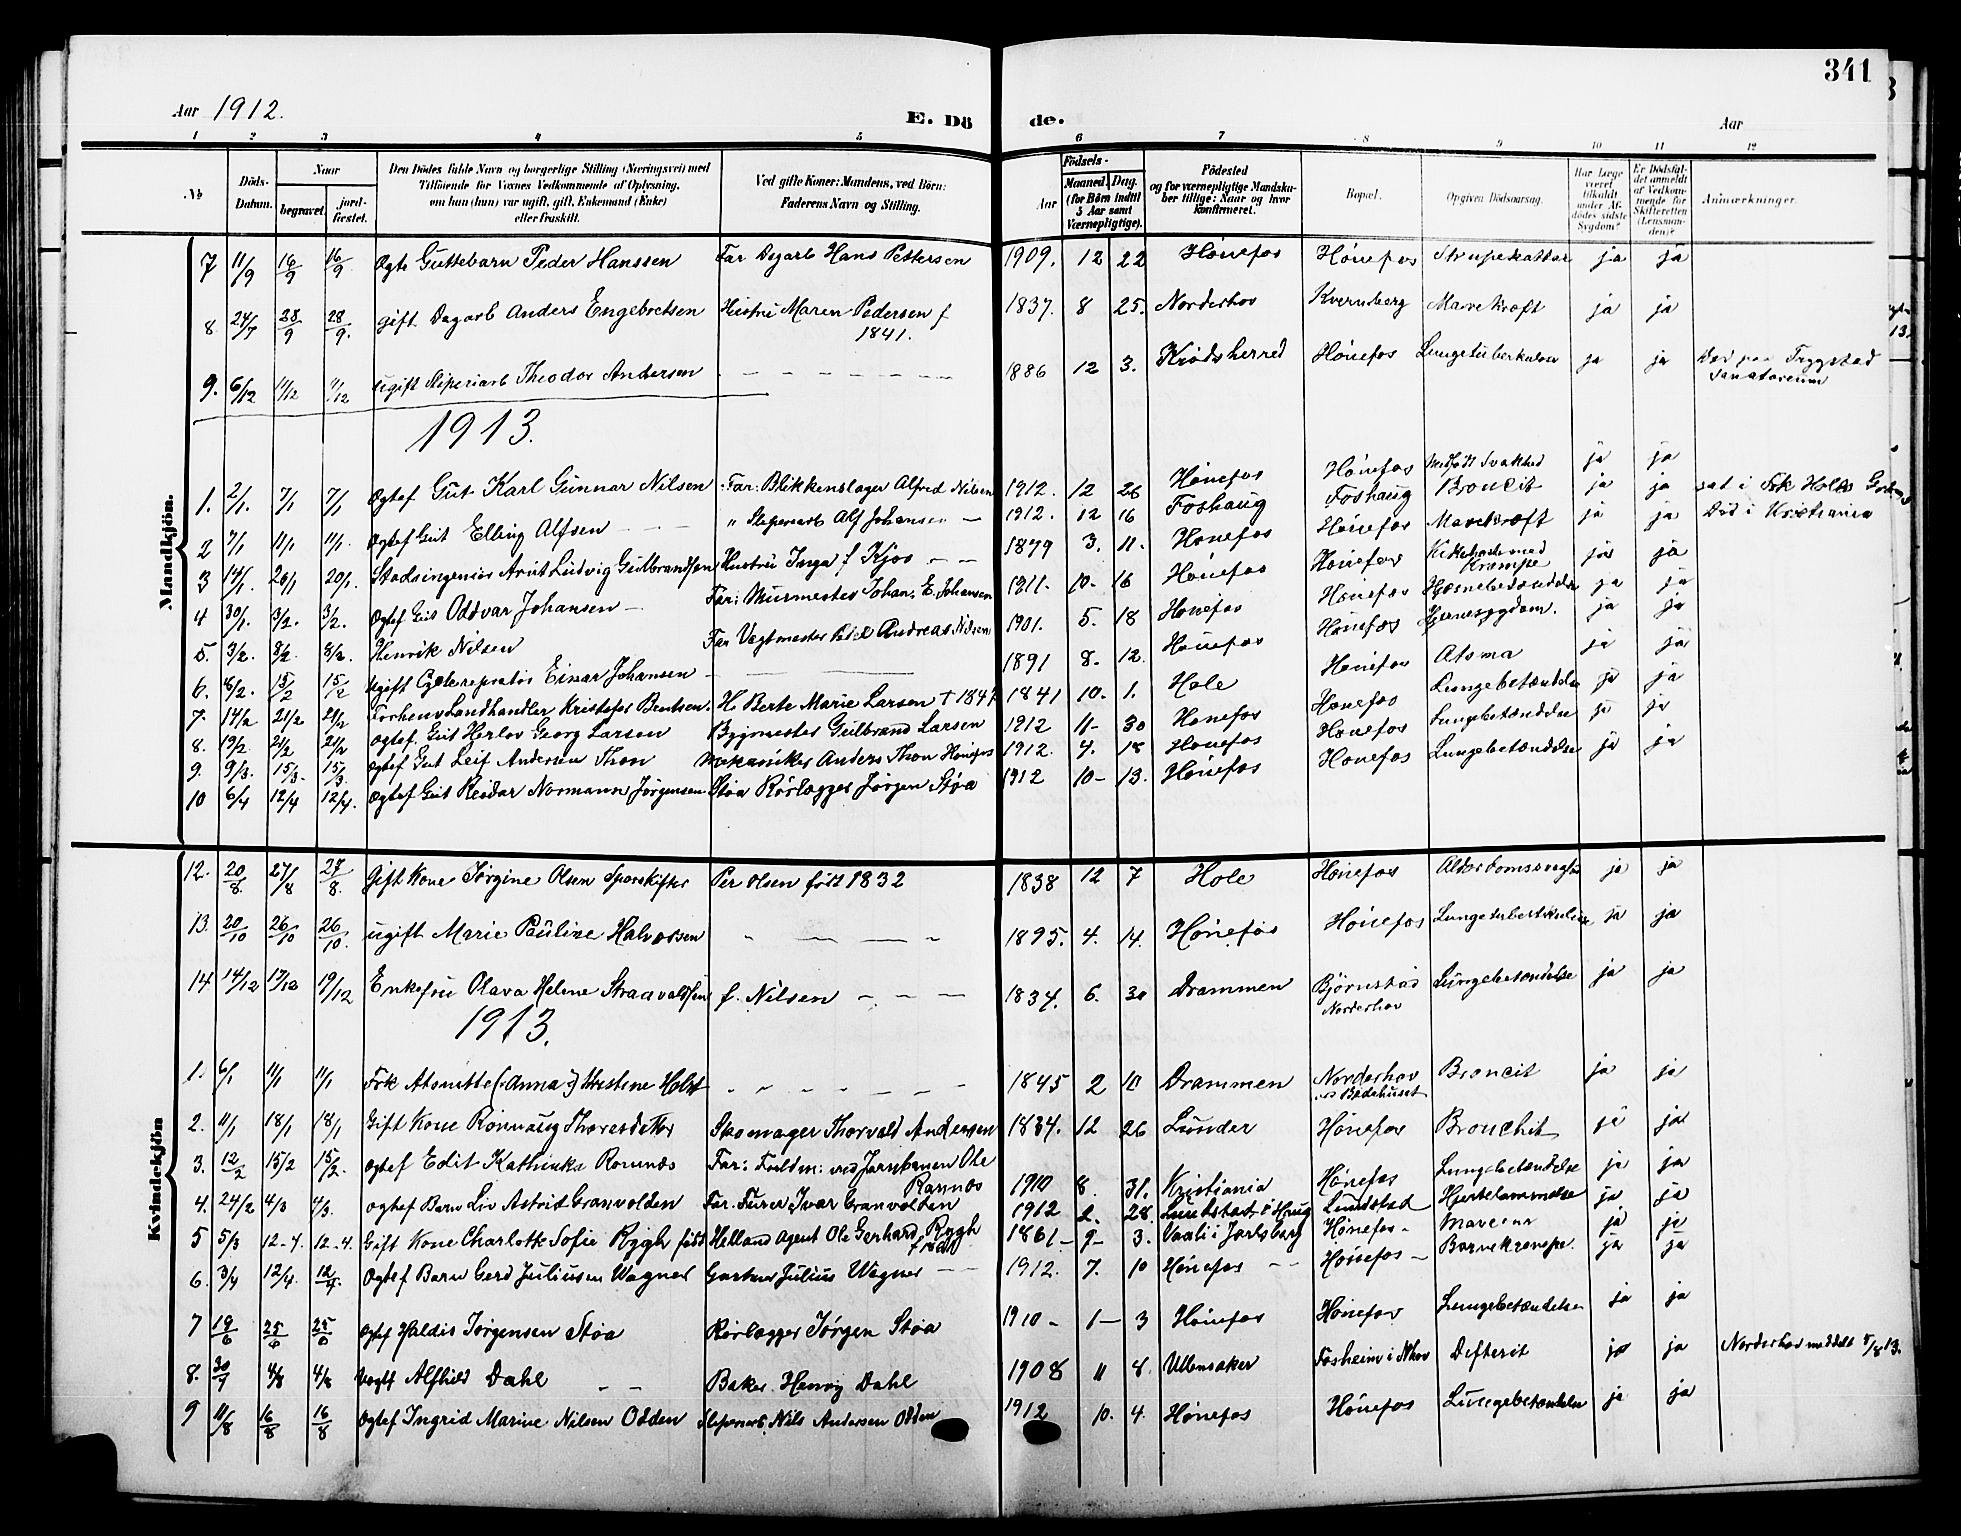 341
Aar 1912.
E. Dö
de.
Aar
1 2 3 4 5 6 7 8 9 10 11 12
№
Döds-Datum.
Naar
begravet.
jord-fæstet.
Den Dödes fulde Navn og borgerlige Stilling (Næringsvei) med
Tilföiende for Voxnes Vedkommende af Oplysning,
om han (hun) var ugift, gift, Enkemand (Enke)
eller fraskilt.
Ved gifte Koner: Mandens, ved Börn:
Faderens Navn og Stilling.
Födsels-
Aar
Maaned. Dag.
(for Börn indtil
5 Aar samt
Værnepligtige).
Födested
og for værnepligtige Mandska-
ber tillige: Naar og hvor
konfirmeret.
Bopæl.
Opgiven Dödsaarsag.
Har Læge
været
tilkaldt
under Af-
dödes sidste
Sygdom?
Er Dödsfal-
det anmeldt
af Vedkom-
mende for
Skifteretten
(Lensman-
den)?
Anmærkninger.
Mandkjön.
7 11/9 16/9 16/9 Ægte Guttebarn Peder Hanssen Far Dagarb Hans Pettersen 1909. 12 22 Hönefos Hönefos Strupekattar ja ja
8. 24/7 28/9 28/9. gift Dagarb Anders Engebretsen Hustru Maren Pedersen f 1841. 1837. 8 25. Norderhov Kvernberg Mavekræft ja ja
9. 6/12 11/12 11/12 ugift Sliperiarb Theodor Andersen 1886 12 3. Krödsherred Hönefos Lungetuberkulose ja ja Död paa Tryggstad Sanatorium
1913.
1. 2/1. 7/1 7/1 Ægtef Gut Karl Gunnar Nilsen Far: Blikkenslager Alfred Nilsen 1912. 12 26 Hönefos Hönefos Medfödt Svakhed ja ja
2 7/1 11/1 11/1. Ægtef Gut Elling Alfsen " Sliperiarb Alf Johansen 1912. 12 16 Foshaug Foshaug Broncit ja ja
3 14/1. 20/1 20/1. Stadsingeniör Arnt Ludvig Gulbrandsen Hustru Inga f Kjos 1879 3. 11. Hönefos Hönefos Mavekræft ja ja Död i Kristiania
4 30/1. 3/2. 3/2. Ægtef Gut Oddvar Johansen Far: Murmester Johan. E. Johansen 1911. 10. 16 Hönefos Hönefos Kikhoste med Krampe ja ja
5. 3/2. 8/2 8/2. Henrik Nilsen Far Vegtmester Peder Andreas Nilsen 1901. 5. 18 Hönefos Hönefos Hjernebetændelse ja ja
6. 8/2. 15/2 15/2 ugift Cyclereparatör Einar Johansen 1891 8. 12. Hönefos Hönefos Hjernesygdom. ja ja
7. 14/2 21/2 21/2 Forhenv Landhandler Kristofer Bentsen. H. Berte Marie Larsen † 1847 1841 10. 1. Hole Hönefos Atsma ja ja
8. 19/2. 21/2 21/2 Ægtef. Gut Herlov Georg Larsen Bygmester Gulbrand Larsen 1912 11 30 Hönefos Hönefos Lungebetændelse ja ja
9. 9/3. 15/3. 15/3. Ægtef Gut Leif Andersen Thon Mekaniker Anders Thon Hönefos 1912. 4. 18 Hönefos Hönefos Lungebetændelse ja ja
10 6/4 12/4 12/4. Ægtef Gut Reidar Normann Jörgensen Stöa Rörlægger Jörgen Stöa 1912 10 13. Hönefos Hönefos Lungebetændelse ja ja
Kvindekjön
12. 20/8. 27/8 27/8. Gift Kone Jörgine Olsen Sporskifter Per Olsen födt 1832 1838 12 7 Hole Hönefos Alderdomssvaghed ja ja
13. 20/10 26/10 26/10. ugift Marie Pauline Halvorsen 1895. 4. 14. Hönefos Hönefos Lungetuberkulose ja ja
14. 14/12 19/12 19/12 Enkefru Olava Helene Straavaldsen f. Nilsen 1834. 6. 30 Drammen Björnstad Norderhov Lungebetændelse ja ja
1913.
1. 6/1 11/1 11/1 Frk (Anna) Kristine Holst 1845 2 10 Drammen Norderhov ved Bedehuset Broncit ja ja
2. 11/1 18/1 18/1 Gift Kone Rönnaug Thoresdatter Skomager Thorvald Andersen 1834. 12 26 Lunder Hönefos Bronchit ja ja
3. 12/2 15/2 15/2. Ægtef Edit Kathinka Rannæs Far: Fuldm: ved Jernbanen Ole Rannæs 1910 8. 31. Kristiania Hönefos Lungebetændelse ja ja
4. 24/2 4/3 4/3. Ægtef Barn Liv Astrid Granvolden Far. Furer Ivar Granvolden 1912 2. 28. Lundstad i Haug Lundstad Hjertelammelse ja ja
5 5/3 12-4. 12-4. Gift Kone Charlotte Sofie Rygh födt Helland Agent Ole Gerhard Rygh 1861 9 3. Vaale i Jarlsberg Hönefos ja ja
6. 3/4 12/4. 12/4 Ægtef Barn Gerd Juliusen Wagner Gartner Julius Wagner 1912. 7. 10 Hönefos Hönefos Barnekrampe. ja ja
7 19/6 25/6 25/6 Ægtef Haldis Jörgensen Stöa Rörlægger Jörgen Stöa 1910 1 3 Hönefos Hönefos Lungebetændelse ja ja
8. 30/7 4/8 4/8 Alfhild Dahl Baker. Henry Dahl 1908 11 8. Ullensaker Fosheim i Nhov Difterit ja ja Norderhov meddelt 5/8 13.
9 11/8 16/8 16/8 Ægtef Ingrid Marine Nilsen Odden Sliperiarb. Nils Andersen Odden 1912 10. 4. Hönefos Hönefos Lungebetændelse ja ja